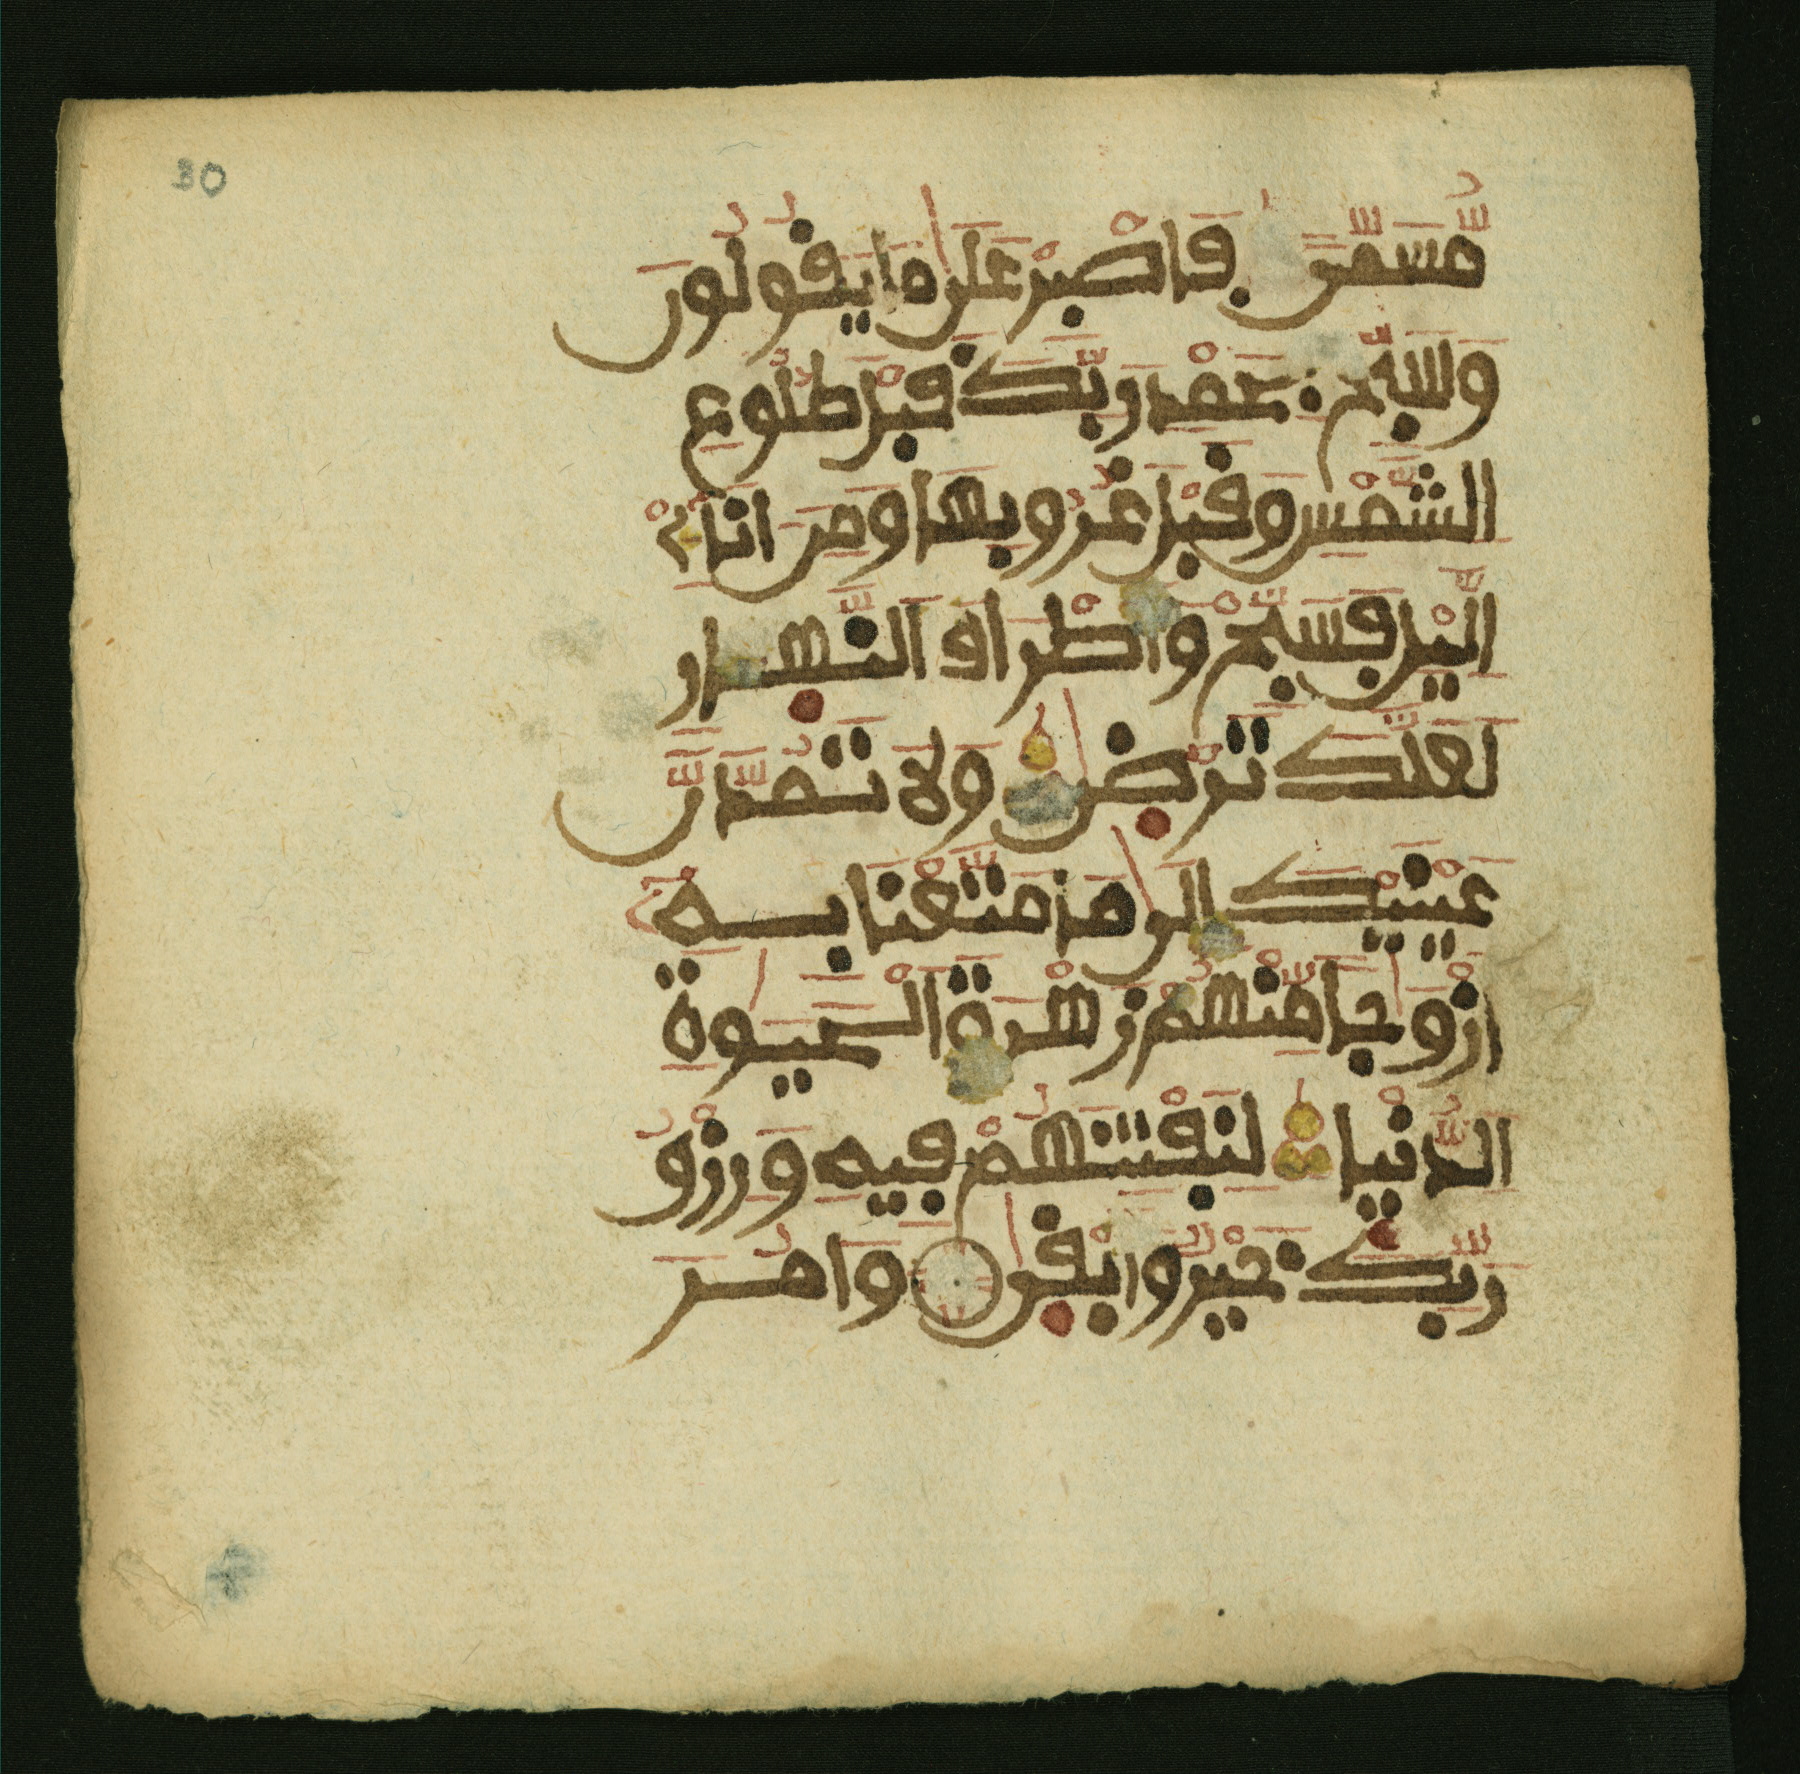 30
مُّسَمًّى فَاصْبِرْ عَلَىٰ مَا يَقُولُونَ
وَسَبِّحْ بِحَمْدِ رَبِّكَ قَبْلَ طُلُوعِ
الشَّمْسِ وَقَبْلَ غُرُوبِهَا وَمِنَ اٰنَآءِے
الَّيْلِ فَسَبِّحْ وَأَطْرَافَ النَّهَارِ
لَعَلَّكَ تَرْضَىٰ وَلَا تَمُدَّنَّ
عَيْنَيْكَ إِلَىٰ مَا مَتَّعْنَا بِهِۦ
أَزْوَٰجًا مِّنْهُمْ زَهْرَةَ الْحَيَوٰةِ
الدُّنْيَا لِنَفْتِنَهُمْ فِيهِ وَرِزْقُ
رَبِّكَ خَيْرٌ وَأَبْقَىٰ وَامُرَ